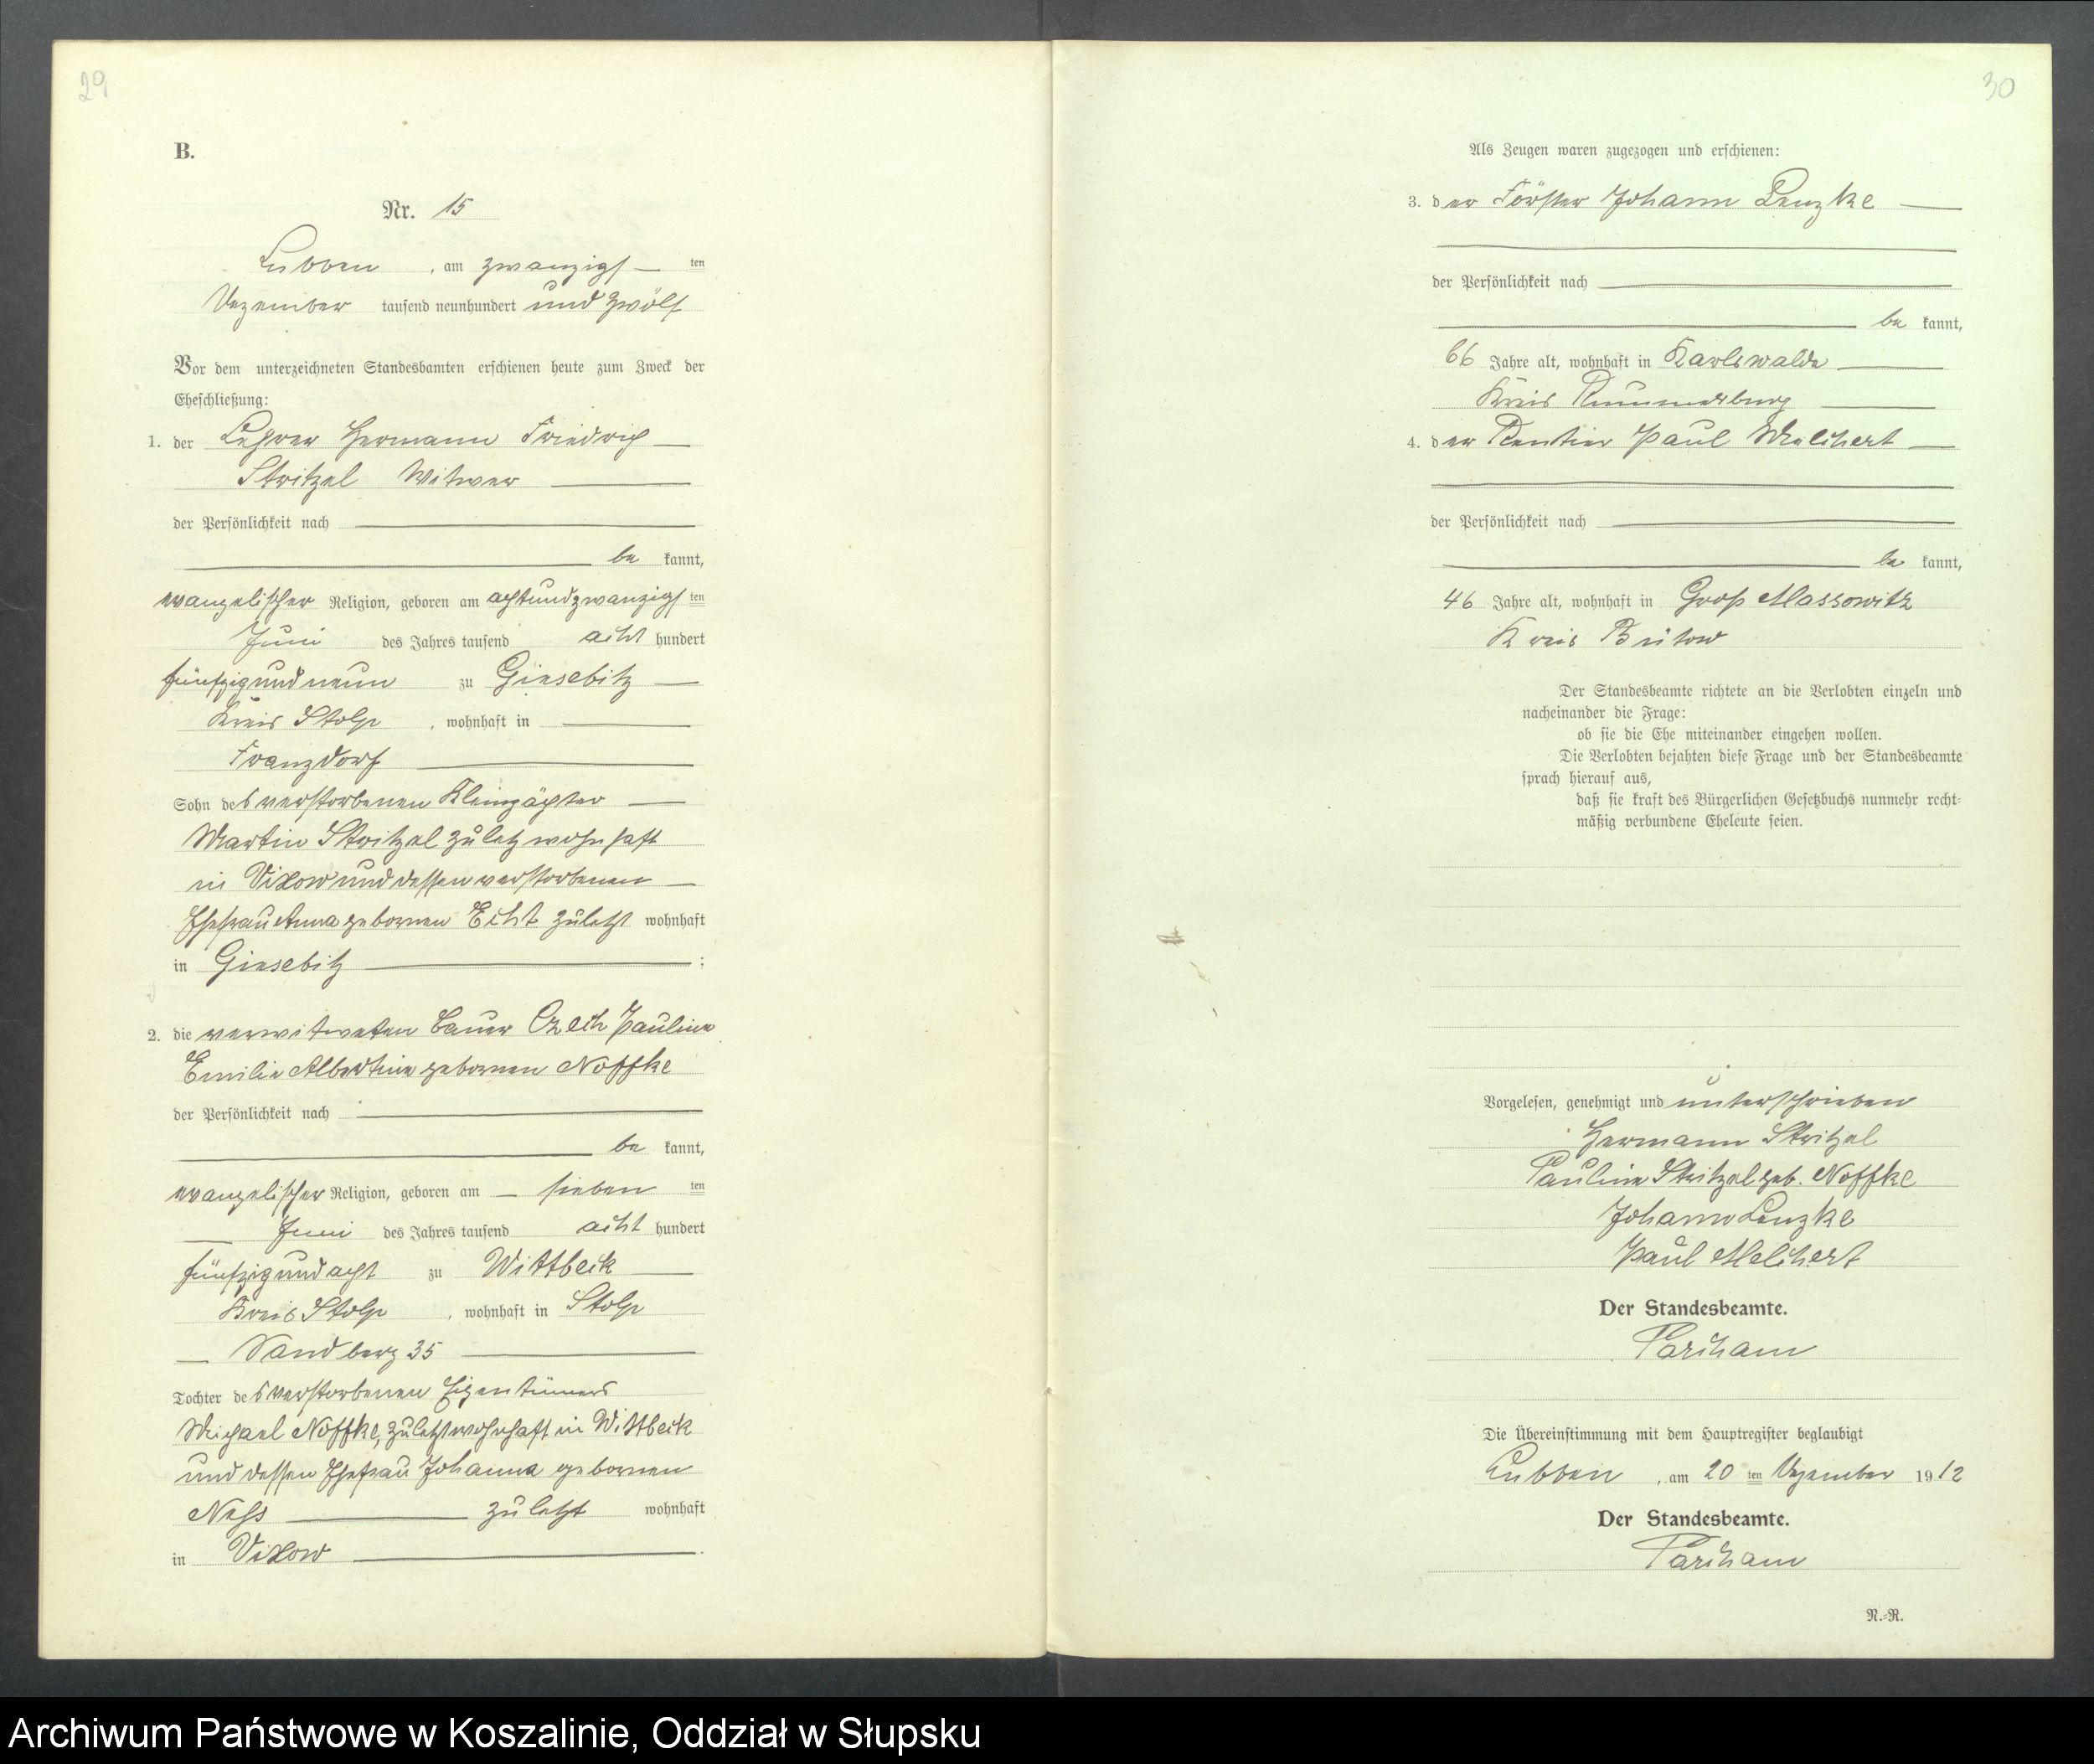 29
B.
Nr. 15
Lubben, am zwanzigsten
Dezember tausend neunhundert und zwölf
Vor dem unterzeichneten Standesbamten erschienen heute zum Zweck der
Eheschließung:
1. der Lehrer Hermann Friedrich
Stritzel Witwer
der Persönlichkeit nach
be kannt,
evangelischer Religion, geboren am achtundzwanzigsten
Juni des Jahres tausend acht hundert
fünfzig und neun zu Giesebitz
Kreis Stolp, wohnhaft in
Franzdorf
Sohn des verstorbenen Kleinpächter
Martin Stritzel zuletz wohnhaft
in Vixow und dessen verstorbenen
Ehefrau Anna gebornen Echt zuletzt wohnhaft
in Giesebitz;
2. die verwitweten Bauer Czech Pauline
Emilie Albertine gebornen Noffke
der Persönlichkeit nach
be kannt,
evangelischer Religion, geboren am sieben ten
Juni des Jahres tausend acht hundert
fünfzig und acht zu Wittbeck
Kreis Stolp, wohnhaft in Stolp
Sandberg 35
Tochter des verstorbenen Eigentümers
Michael Noffke, zuletzt wohnhaft in Wittbeck
und dessen Ehefrau Johanna gebornen
zuletzt wohnhaft
in Vixow.
30
Als Zeugen waren zugezogen und erschienen:
3. der Förster Johann Lenzke
der Persönlichkeit nach
be kannt,
66 Jahre alt, wohnhaft in Karlswalde
Kreis Rummelsburg
4. der Rentier Paul Melchert
der Persönlichkeit nach
be kannt,
46 Jahre alt, wohnhaft in Groß Massowitz
Kreis Bütow
Der Standesbeamte richtete an die Verlobten einzeln und
nacheinander die Frage:
ob sie die Ehe miteinander eingehen wollen.
Die Verlobten bejahten diese Frage und der Standesbeamte
sprach hierauf aus,
daß sie kraft des Bürgerlichen Gesetzbuchs nunmehr recht-
mäßig verbundene Eheleute seien.
Vorgelesen, genehmigt und unterschrieben
Hermann Stritzel
Pauline Stritzel geb. Noffke
Johann Lenzke
Paul Melchert
Der Standesbeamte.
Parcham
Die Übereinstimmung mit dem Hauptregister beglaubigt
Lubben, am 20 ten Dezember 1912
Der Standesbeamte.
Parcham
N.-R.
Archiwum Państwowe w Koszalinie, Oddział w Słupsku